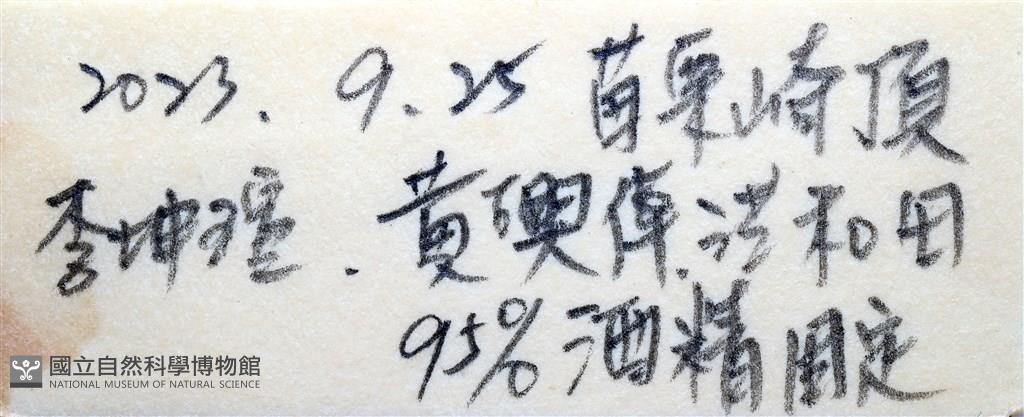 2023. 9. 25 苗栗崎頂
李坤瑄. 黃興倬.洪和田
95% 酒精固定
國立自然科學博物館
NATIONAL MUSEUM OF NATURAL SCIENCE